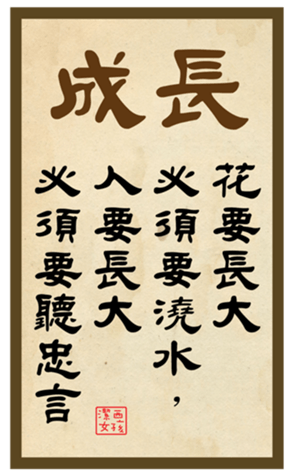 成長
花要長大
必須要澆水，
人要長大
必須要聽忠言